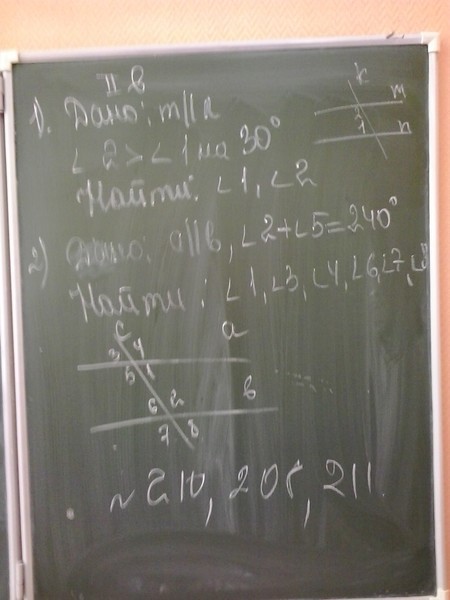 II в
1). Дано: m||n
∠2 > ∠1 на 30°
Найти: ∠1, ∠2
k
m
n
2
1
2) Дано: a||в, ∠2+∠5=240°
Найти: ∠1, ∠3, ∠4, ∠6, ∠7, ∠8
c
a
3 4
5 1
в
6 2
7 8
~ 210, 208, 211.